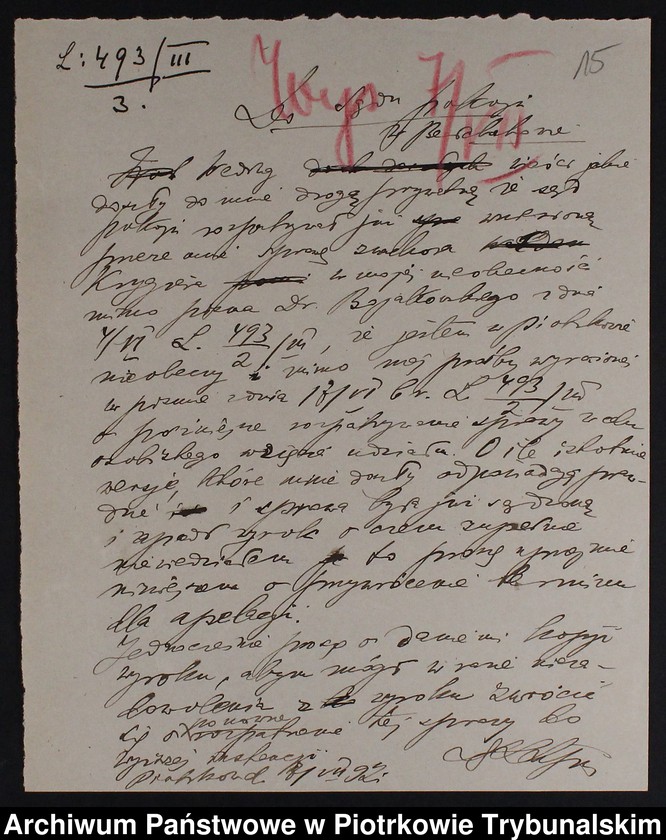 L: 493/III
3.
15
Wys 7/VII
Do Sądu Pokoju
w Bełchatowie
Według wieści jakie
doszły do mnie drogą prywatną że sąd
pokoju rozpatrywał już wniesioną
przeze mnie sprawę
Krygiera w mojej nieobecności
mimo pisma Dr. Bojałkowskiego z dnia
4/VI L. 493/III, że jestem w Piotrkowie
2
nieobecny i mimo mej prośby wyrażonej
w piśmie z dnia 18/VI b.r. L 493/III
2
o późniejsze rozpatrzenie sprawy w celu
osobistego wzięcia udziału. O ile istotnie
wersje, które mnie doszły odpowiadają praw-
dzie i sprawa była już sądzoną
i zapadł wyrok o czem zupełnie
nie wiedziałem to proszę uprzejmie
niniejszem o przywrócenie terminu
dla apelacji.
Jednocześnie proszę o danie mi kopji
wyroku, abym mógł w razie nieza-
dowolenia z wyroku zwrócić
się o ponowne rozpatrzenie tej sprawy do
wyższej instancji
Piotrków d. 8/VII 92
Archiwum Państwowe w Piotrkowie Trybunalskim